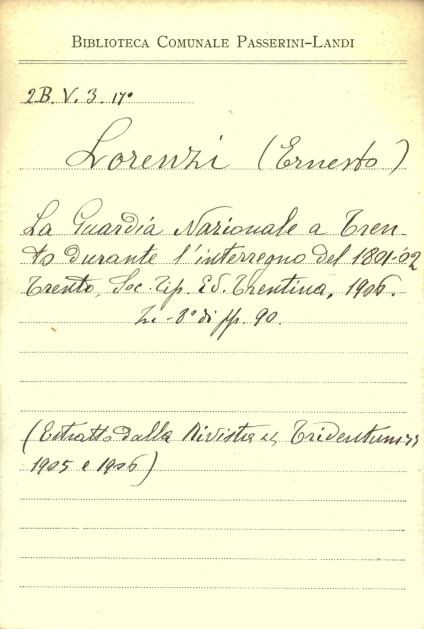 BIBLIOTECA COMUNALE PASSERINI-LANDI
2B. V. 3. 17°
Lorenzi (Ernesto)
La Guardia Nazionale a Tren-
to durante l'interregno del 1801-02
Trento, Soc. Tip. Ed. Trentina, 1906.
In-8° di pp. 90.
(Estratto dalla Rivista "Tridentum"
1905 e 1906)